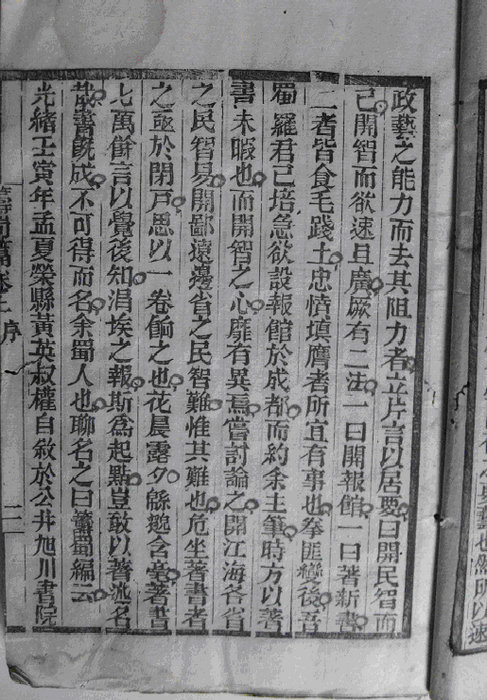 政藝之能力而去其阻力者立片言以居要曰開民智而
已開智而欲速且廣厥有二法一曰開報館一曰著新書
二者皆食毛踐土忠憤填膺者所宜有事也拳匪變後吾
蜀羅君已培急欲設報館於成都而約余主筆時方以著
書未暇也而開智之心靡有異焉嘗討論之開江海各省
之民智易開鄙遠邊省之民智難惟其難也危坐著書者
之亟於閉戶思以一卷偷之也花晨露夕緜邈含毫著書
七萬餘言以覺後知涓埃之報斯為起點豈敢以著述名
哉書既成不可得而名余蜀人也聊名之曰籌蜀編云
光緒壬寅年孟夏榮縣黃英叔權自敘於公井旭川書院
籌蜀篇卷上 序 二